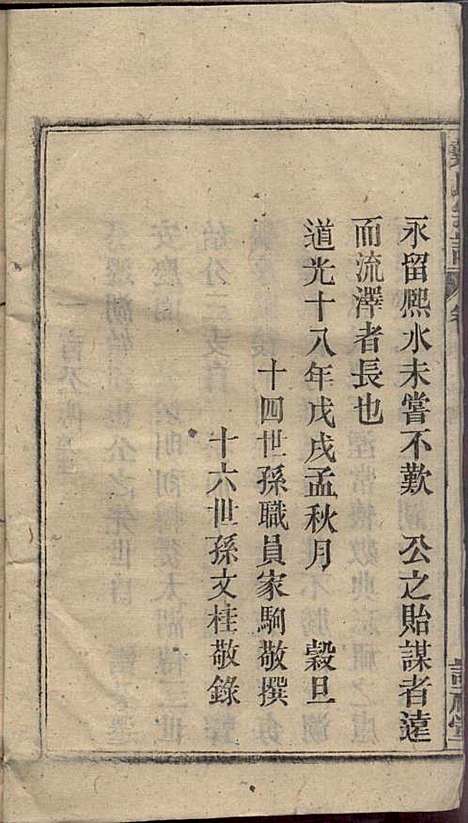 永留熙水未嘗不歎　公之貽謀者遠
而流澤者長也
道光十八年戊戌孟秋月　穀旦
十四世孫職員家駒敬撰
十六世孫文桂敬錄